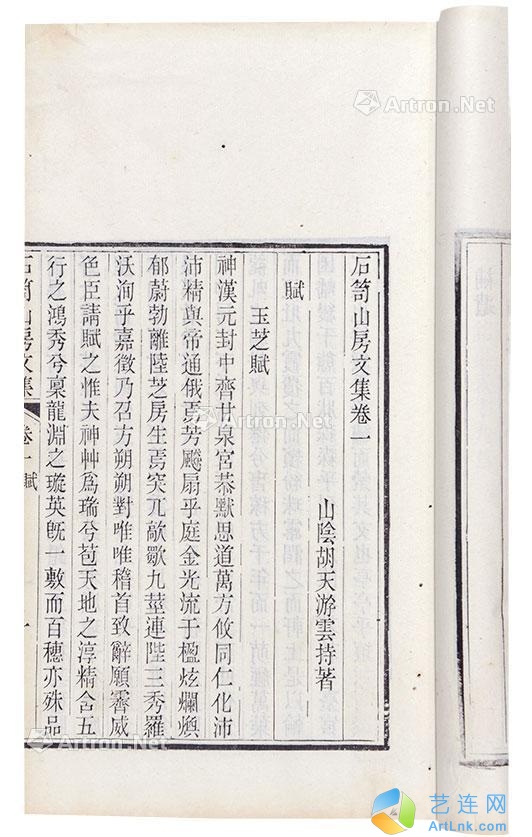 石笥山房文集卷一
山陰胡天游雲持著
賦
玉芝賦
神漢元封中齊甘泉宮恭默思道萬方攸同仁化沛
沛精與帝通俄焉芳飈扇乎庭金光流于楹炫爛燠
郁蔚勃離陸芝房生焉突兀歊歠九莖連陛三秀羅
沃洵乎嘉徵乃召方朔朔對唯唯稽首致辭願霽威
色臣請賦之惟夫神艸爲瑞兮苞天地之淳精含五
行之鴻秀兮稟龍淵之璇英旣一敷而百穗亦殊品
石笥山房文集 卷一 賦 一
補遺
Artron.Net
Artron.Net
Artron.Net
Artron.Net
艺连网
ArtLnk.com